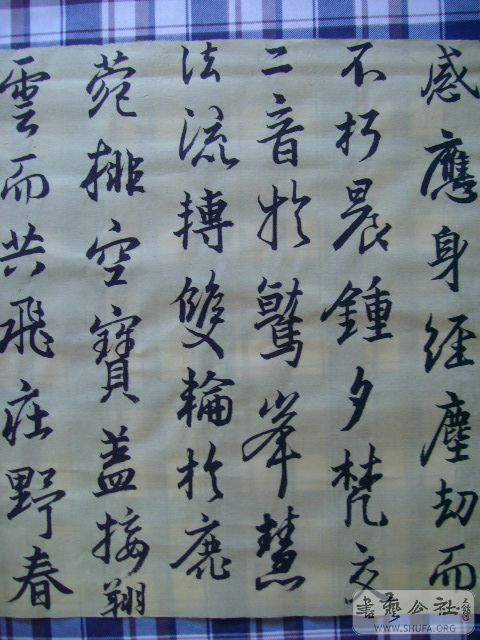 感應身經塵劫而
不朽晨鍾夕梵交
二音於鷲峯慧
法流轉雙輪於鹿
菀排空寶蓋接翔
雲而共飛莊野春
書藝公社
WWW.SHUFA.ORG